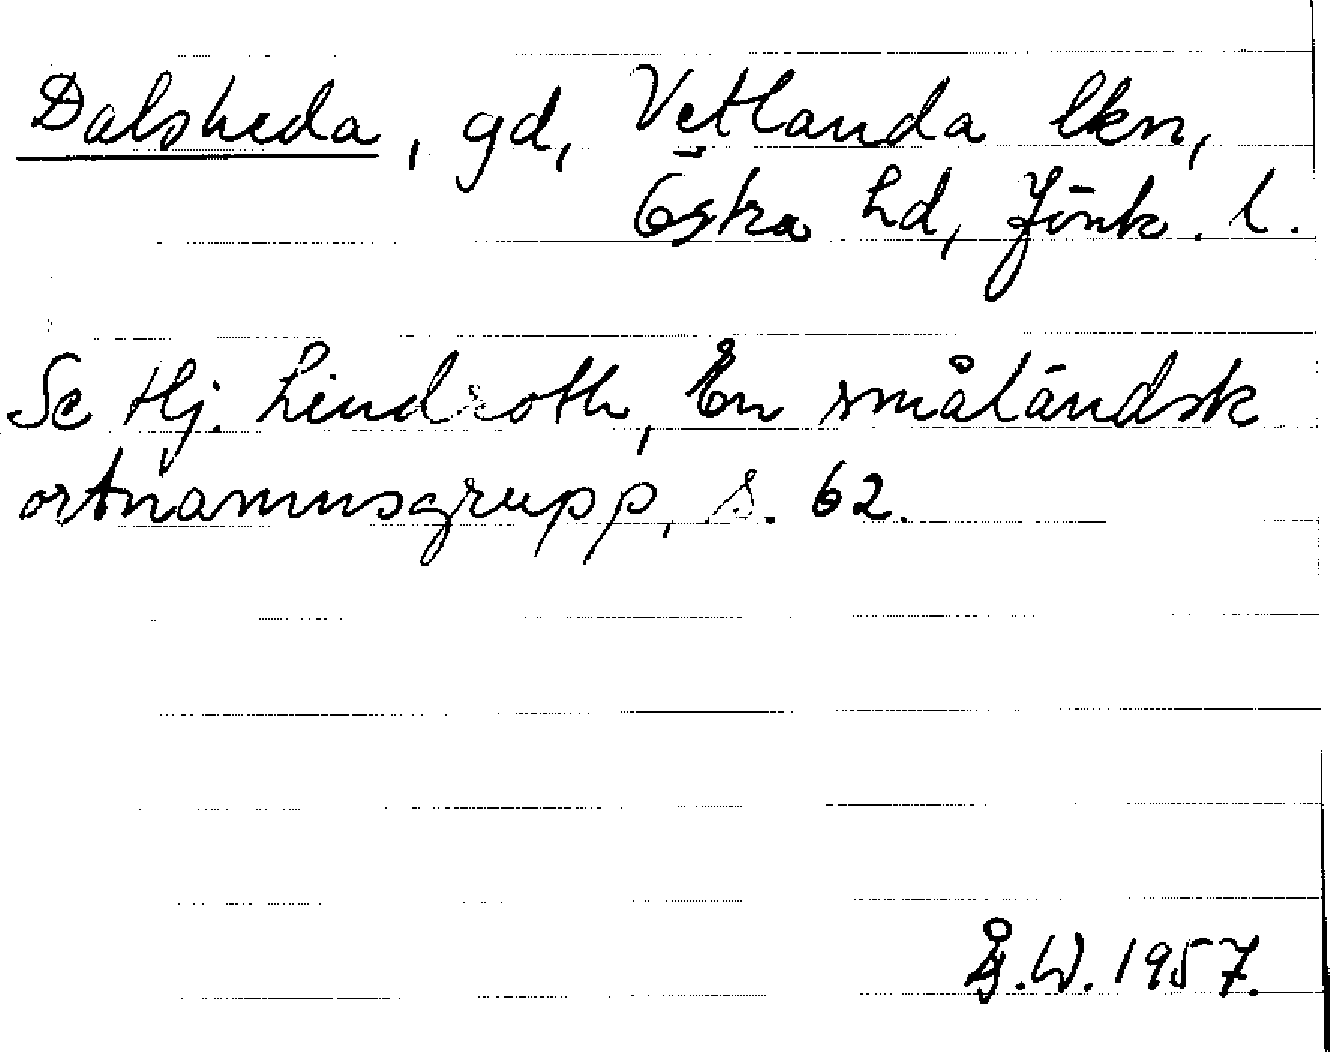 Dalsheda, gd, Vetlanda lkn,
Östra hd, Jönk. l.
Se Hj. Lindroth, En småländsk
ortnamnsgrupp, s. 62.
Å.W. 1957.